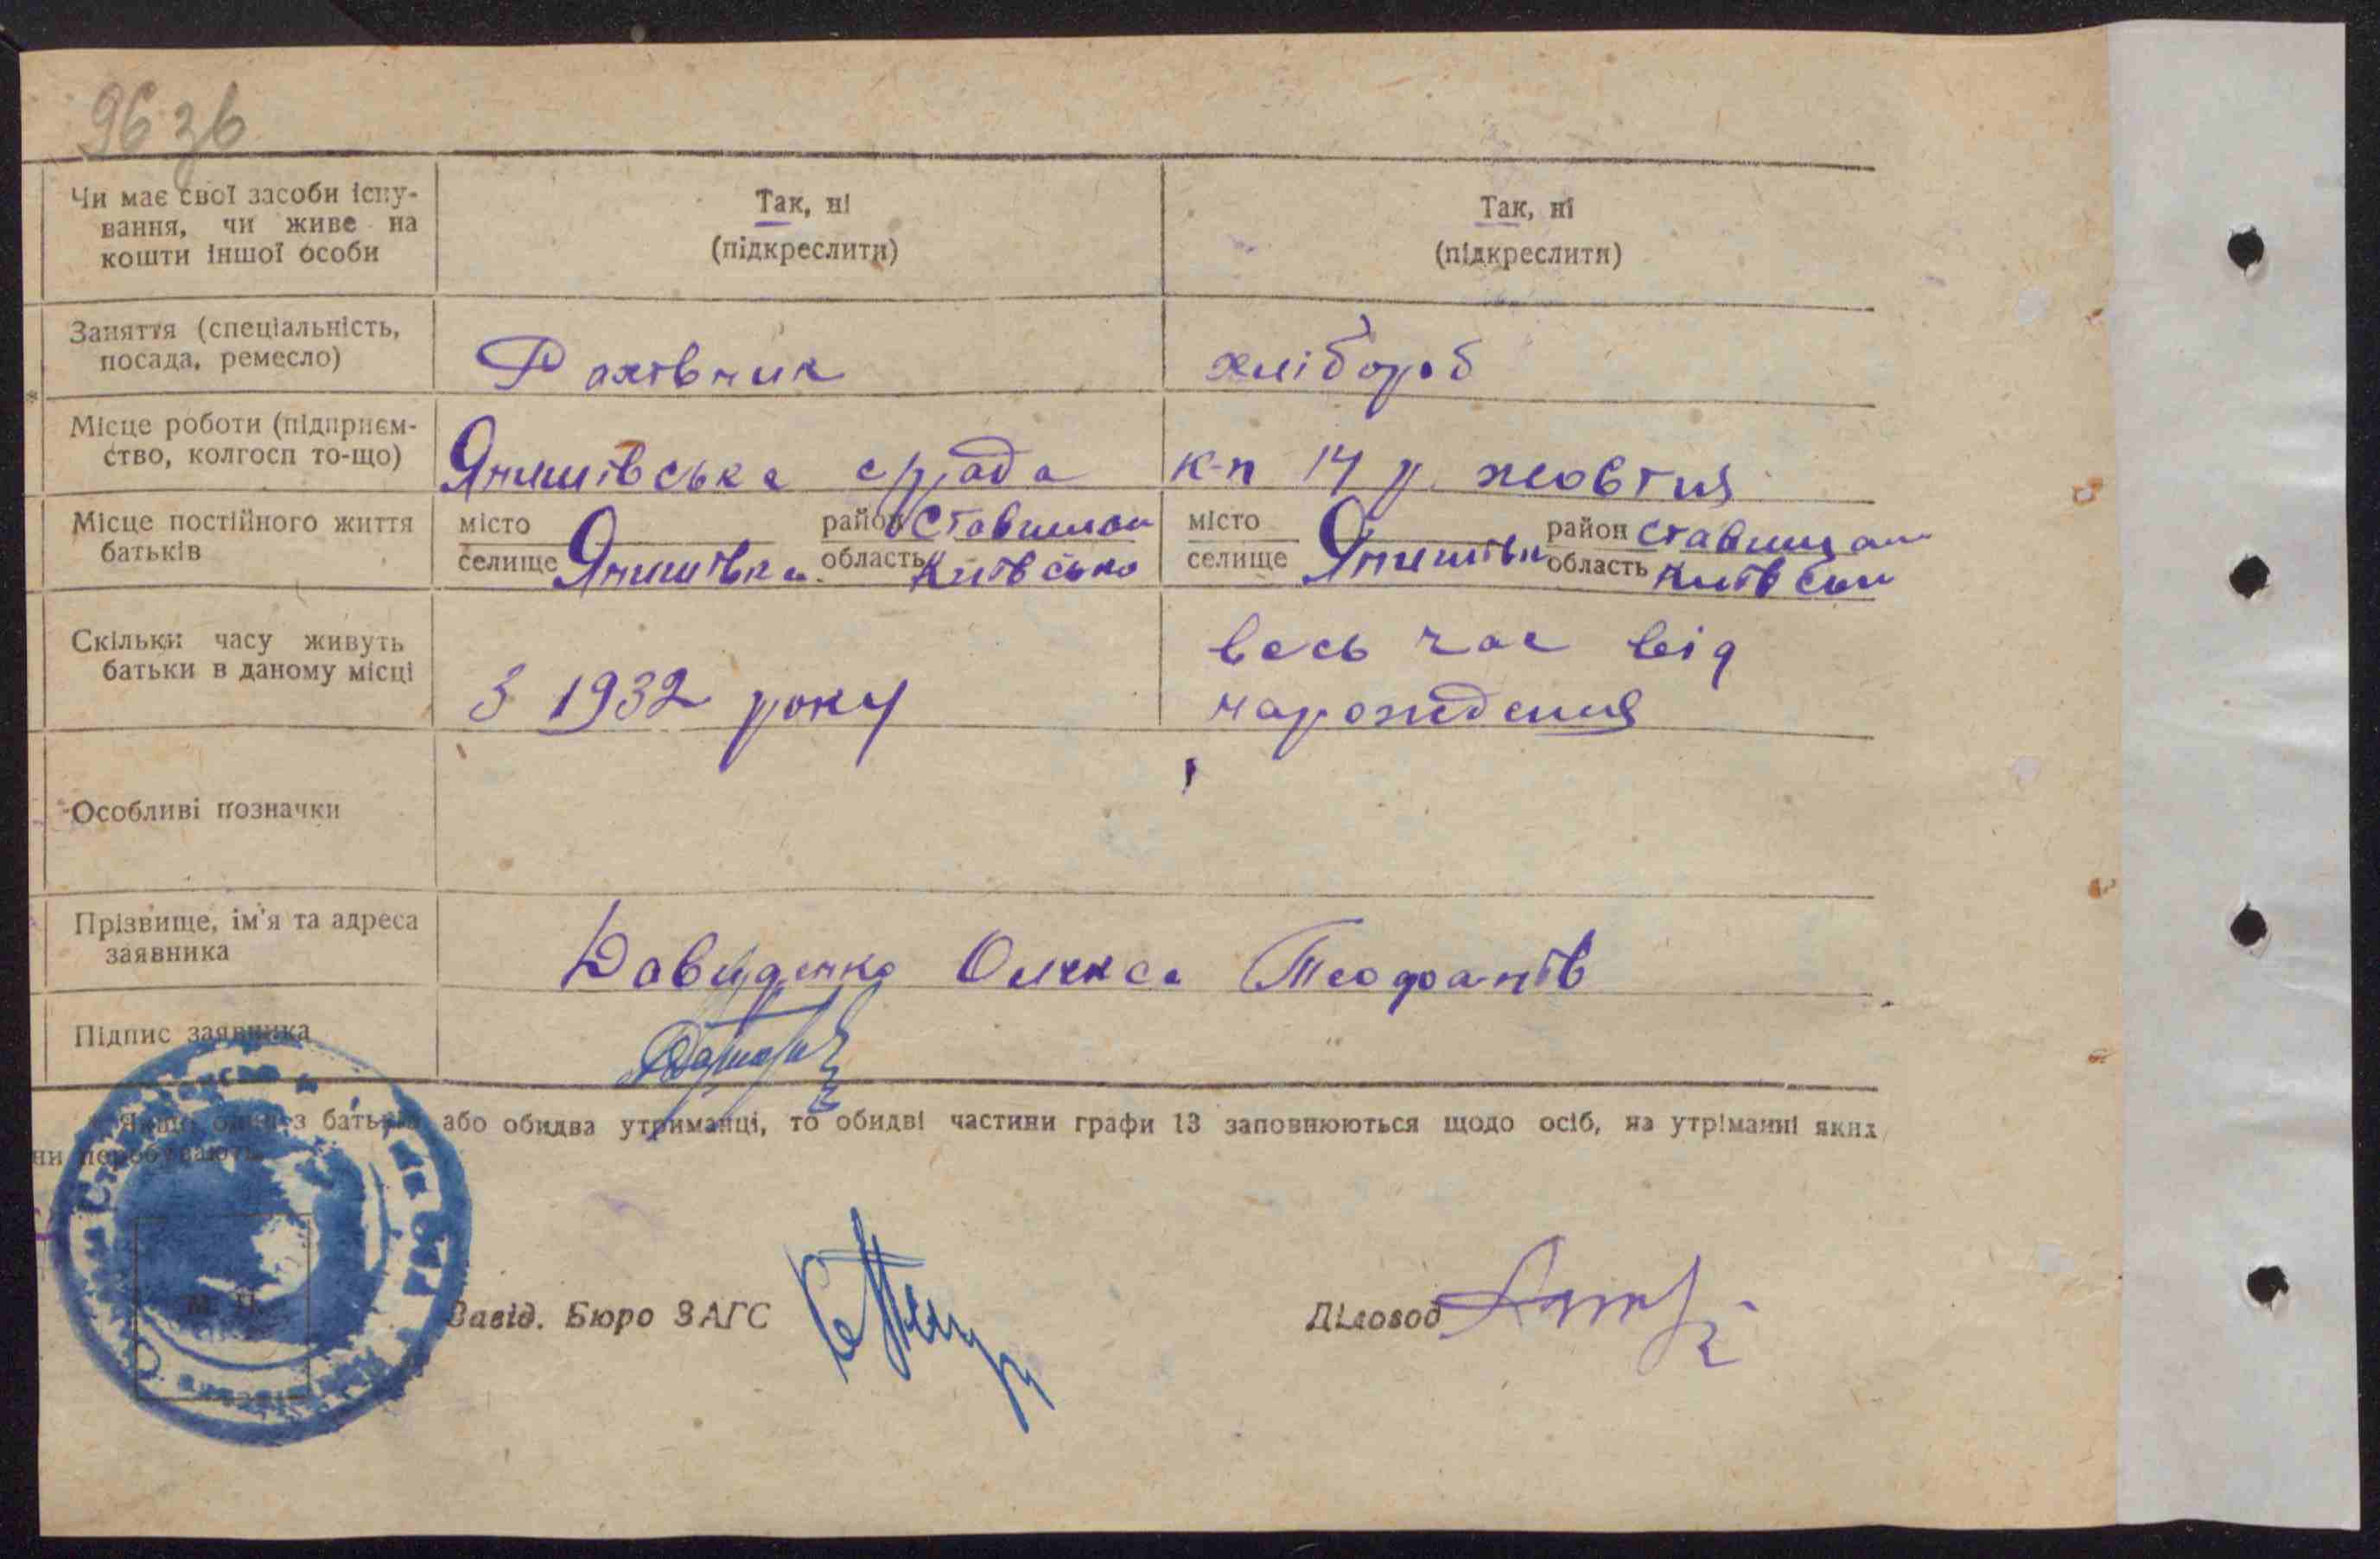 96 зв
Чи має свої засоби існу-
вання, чи живе на
кошти іншої особи
Так, ні
(підкреслити)
Так, ні
(підкреслити)
Заняття (спеціальність,
посада, ремесло)
Рахівник
хлібороб
Місце роботи (підприєм-
ство, колгосп то-що)
Янишівська с/рада
к-п 14 р. жовтня
Місце постійного життя
батьків
місто
селище Янишівка
район Ставищан
область Київсько
місто
селище Янишівк
район Ставищан
область Київськ
Скільки часу живуть
батьки в даному місці
З 1932 року
весь час від
нарождения
Особливі позначки
Прізвище, ім'я та адреса
заявника
Давиденко Олекса Теофанів
Підпис заявника
* Якщо один з батьків або обидва утриманці, то обидві частини графи 13 заповнюються щодо осіб, на утріманні яких
ни перебувають.
М. П.
Завід. Бюро ЗАГС
Діловод